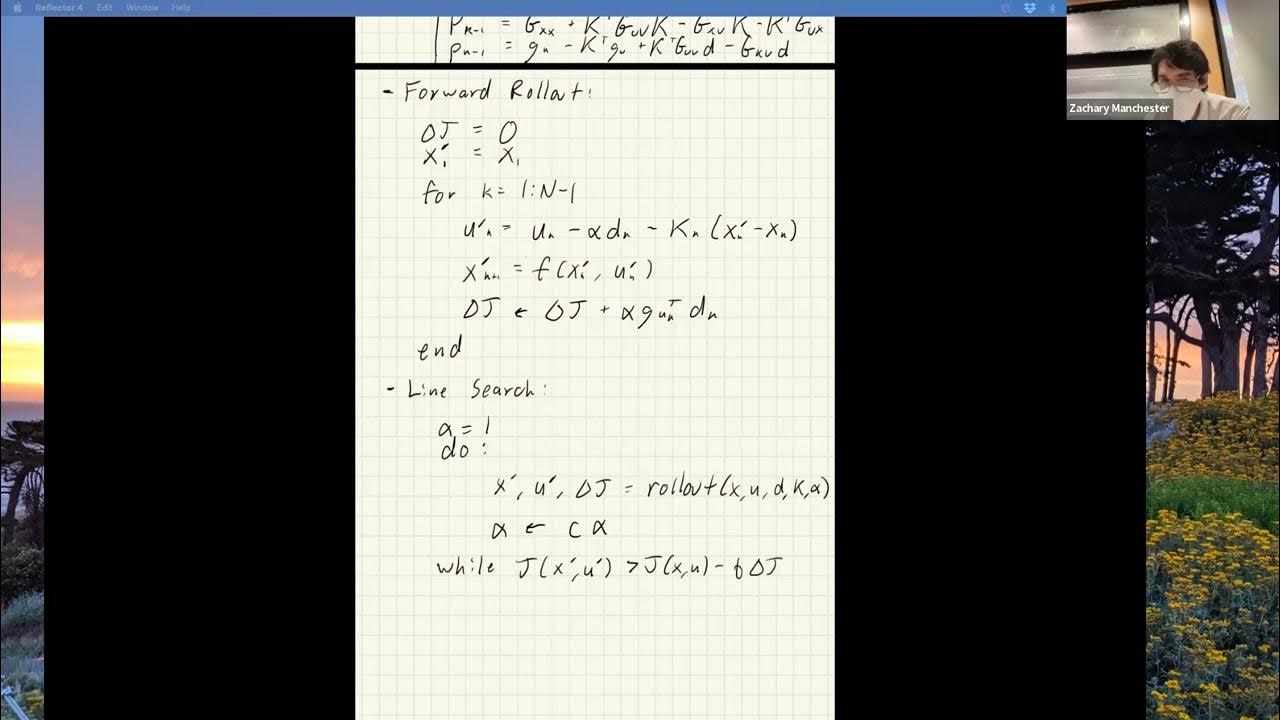 Reflector 4 Edit Window Help
Pₙ₋₁ = Gₓₓ + KᵀGᵤᵤK - GₓᵤK - KᵀGᵤₓ
pₙ₋₁ = gₓ - Kᵀgᵤ + KᵀGᵤᵤd - Gₓᵤd
Zachary Manchester
- Forward Rollout:
ΔJ = 0
x'₁ = x₁
for k = 1:N-1
u'ₙ = uₙ - αdₙ - Kₙ(x'ₙ - xₙ)
x'ₙ₊₁ = f(x'ₙ, u'ₙ)
ΔJ ← ΔJ + αgᵤₙᵀdₙ
end
- Line Search:
α = 1
do :
x', u', ΔJ = rollout(x,u,d,K,α)
α ← cα
while J(x',u') > J(x,u) - bΔJ